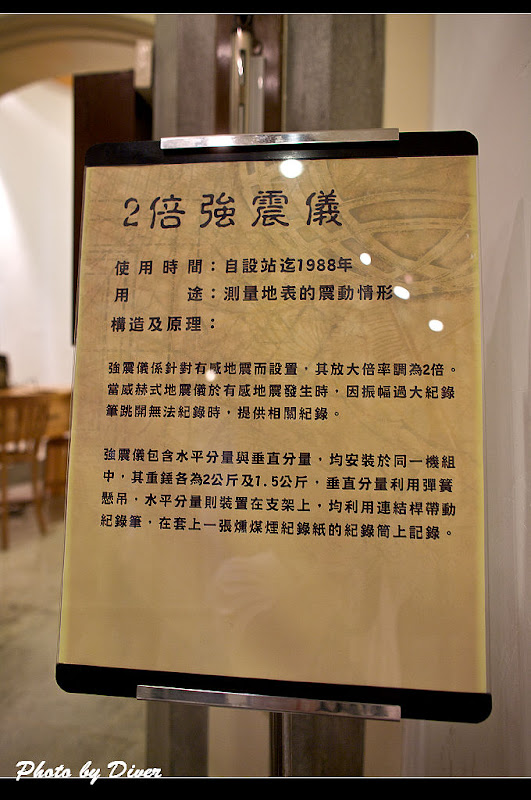 2倍強震儀
使用時間：自設站迄1988年
用　　途：測量地表的震動情形
構造及原理：
強震儀係針對有感地震而設置，其放大倍率調為2倍。
當威赫式地震儀於有感地震發生時，因振幅過大紀錄
筆跳開無法紀錄時，提供相關紀錄。
強震儀包含水平分量與垂直分量，均安裝於同一機組
中，其重錘各為2公斤及7.5公斤，垂直分量利用彈簧
懸吊，水平分量則裝置在支架上，均利用連結桿帶動
紀錄筆，在套上一張燻煤煙紀錄紙的紀錄筒上記錄。
Photo by Diver